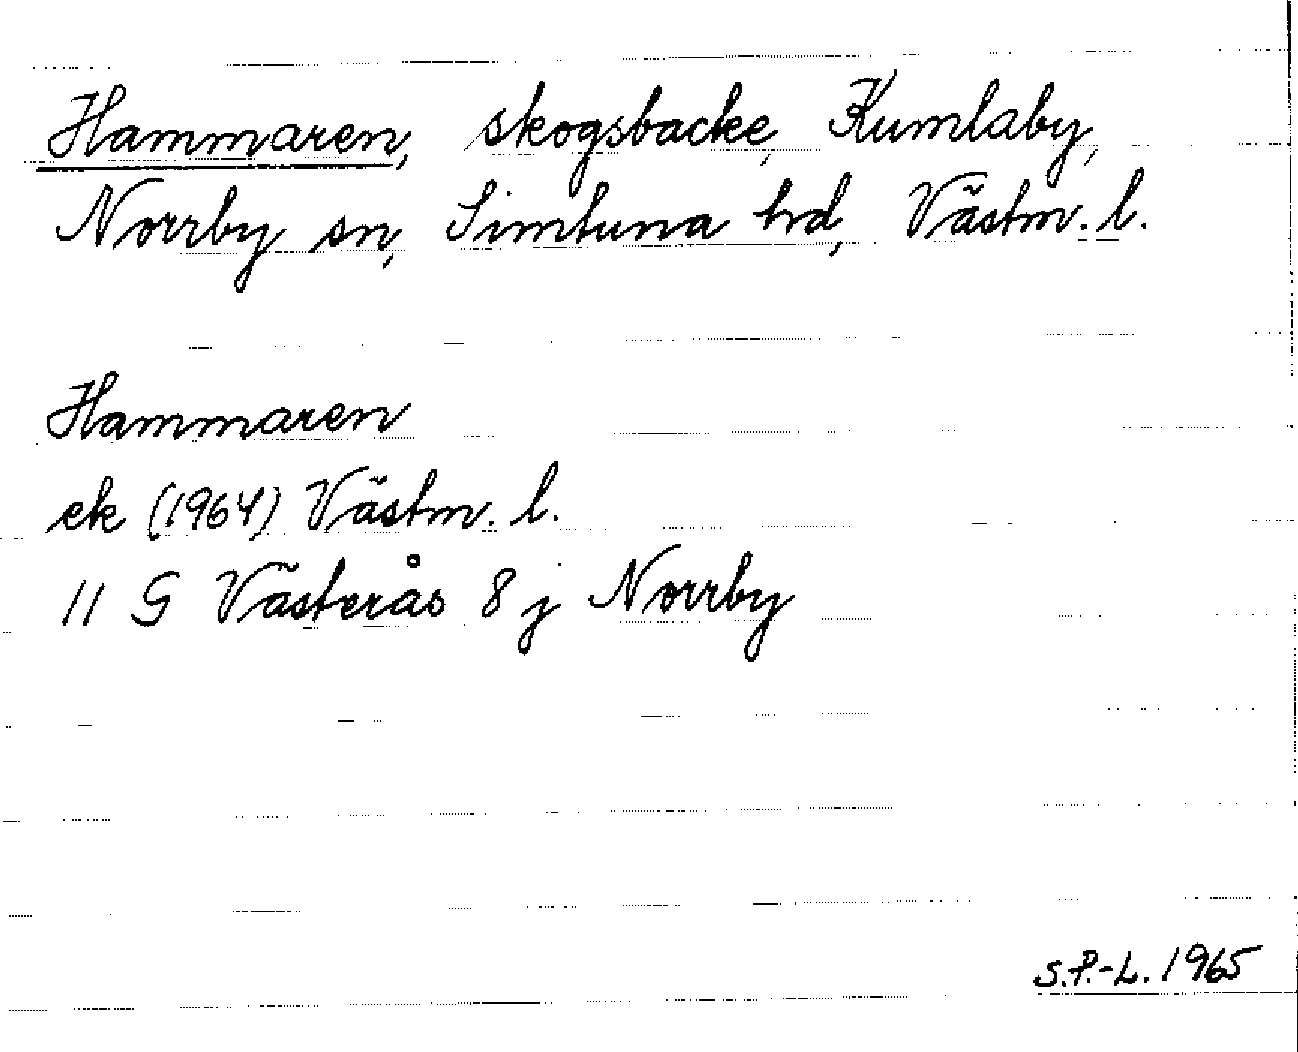 Hammaren, skogsbacke, Kumlaby,
Norrby sn, Simtuna hd, Västm. l.
Hammaren
ek (1964) Västm. l.
11 G Västerås 8 j Norrby
S.P.-L. 1965